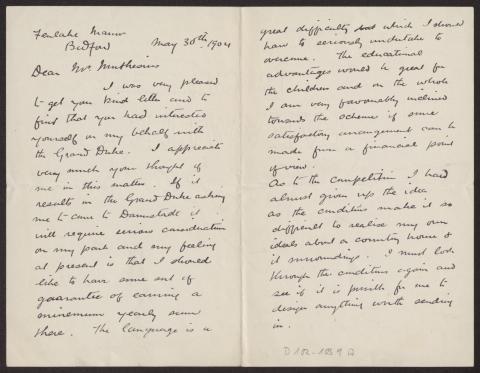 Fenlake Manor
Bedford May 30th, 1904
Dear Mr. Muthesius
I was very pleased
to get you kind letter and to
find that you had interested
yourself on my behalf with
the Grand Duke. I appreciate
very much your thought of
me in this matter. If it
results in the Grand Duke asking
me to come to Darmstadt it
will require serious consideration
on my part and my feeling
at present is that I should
like to have some sort of
guarantee of earning a
minimum yearly sum
there. The language is a
great difficulty but which I should
have to seriously undertake to
overcome. The educational
advantages would be great for
the children and on the whole
I am very favourably inclined
towards the scheme if some
satisfactory arrangement can be
made from a financial point
of view.
As to the competition I had
almost given up the idea
as the conditions make it so
difficult to realise my own
ideals about a country house &
it surroundings. I must look
through the conditions again and
see if it is possible for me to
design anything worth sending
in.
D 102-